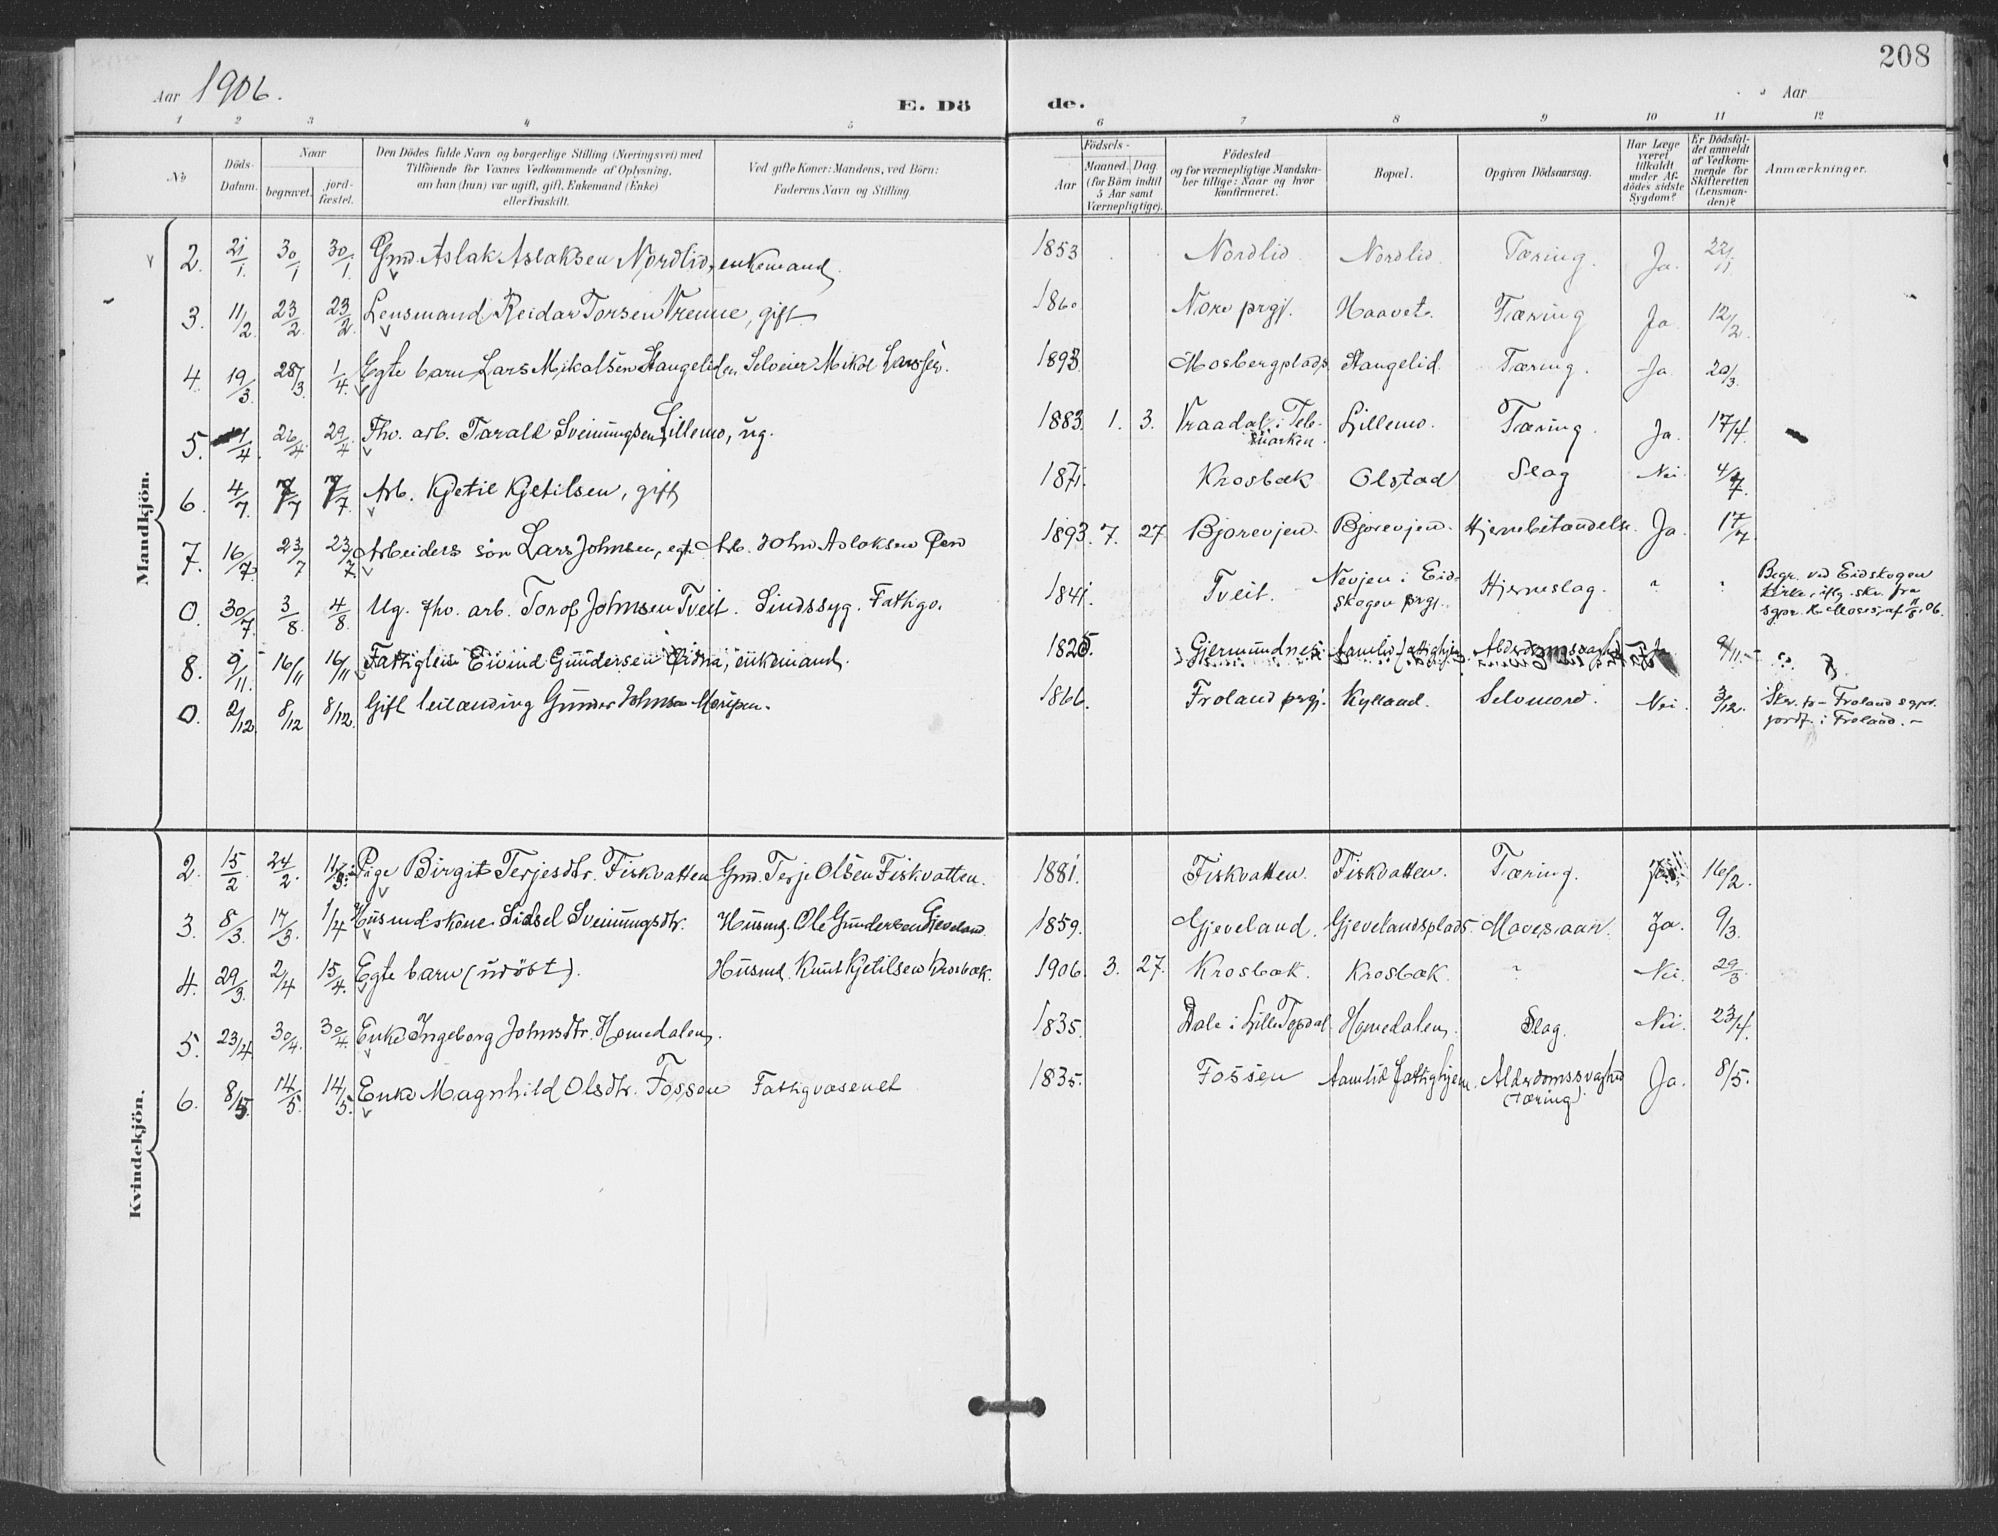 208
Aar 1906.
E. Dö de.
Aar
1 2 3 4 5 6 7 8 9 10 11 12
No
Döds-Datum.
Naar
begravet.
jord-fæstet.
Den Dödes fulde Navn og borgerlige Stilling (Næringsvei) med
Tilföiende for Voxnes Vedkommende af Oplysning,
om han (hun) var ugift, gift, Enkemand (Enke)
eller fraskilt.
Ved gifte Koner: Mandens, ved Börn:
Faderens Navn og Stilling.
Födsels-
Aar
Maaned. Dag
(for Börn indtil
5 Aar samt
Værnepligtige).
Födested
og for værnepligtige Mandska-
ber tillige: Naar og hvor
konfirmeret.
Bopæl.
Opgiven Dödsaarsag.
Har Læge
været
tilkaldt
under Af-
dödes sidste
Sygdom?
Er Dödsfal-
det anmeldt
af Vedkom-
mende for
Skifteretten
(Lensman-
den)?
Anmærkninger.
Mandkjön.
2. 21/1. 30/1 30/1. Gmd. Aslak Aslaksen Nordlid, enkemand. 1853 Nordlid. Nordlid. Tæring. Ja.
3. 11/2 23/2 23/2 Lensmand Reidar Torsen Vrenne, gift 1860 Nore prgj. Haavet. Tæring Ja. 12/2.
4. 19/3. 28/3 1/4. Egte barn Lars Mikalsen Stangeliden Selveier Mikal Larssen. 1893. Mosbergplads Stangelid. Tæring. Ja. 20/3.
5. /4 26/4. 29/4 Fhv. arb. Tarald Sveinungsen Lillemo, ug. 1883. 1. 3. Vraadal i Tele-
marken. Lillemo. Tæring. Ja. 17/4.
6. 4/7. 7/7 7/7. Arb. Kjetil Kjetilsen, gift 1871. Krosbæk Olstad Slag Nei. 4/7.
7. 16/7. 23/7 23/7. Arbeiders sön Lars Johnsen, egt. Arb. John Aslaksen 1893. 7. 27. Bjorevjen. Bjorevjen. Hjernebetændelse. Ja. 17/7.
0. 30/7 3/8. 4/8. Ug. fhv. arb. Torof Johnsen Tveit. Sindssyg. Fattigv. 1841. Tveit. Nevjen i Eid-
skogen prgj. Hjerneslag. " " Begr. ved Eidskogen
kirke, iflg. skr. fra
sgpr. K. Moses, af 11/8.06.
8. 9/11. 16/11 16/11 Fattiglem Eivind Gundersen Eidna, enkemand. 1825. Gjermundnes. Aamlid fattighjem. Alderdomssvaghed Ja. 9/11.
0. 2/12. 8/12 8/12. Gift leilænding Gunder Johnsen 1866. Froland prgj. Kylland. Selvmord. Nei. 3/12. Skr. fr. Froland sgpr.
jordf. i Froland.
Kvindekjön.
2. 15/2 24/2. Pige Birgit Terjesdtr. Fiskvatten Gmd. Terje Olsen Fiskvatten. 1881. Fiskvatten. Fiskvatten. Tæring. 16/2.
3. 8/3 17/3. 1/4 Husmdskone Sidsel Sveinungsdtr. Husmd. Ole Gundersen Gjeveland. 1859. Gjeveland. Gjevelandsplads. Mavesaar. Ja. 9/3.
4. 29/3. 2/4 15/4. Egte barn (udöbt). Husmd. Knut Kjetilsen Krosbæk. 1906. 3. 27. Krosbæk. Krosbæk. " Nei. 29/3
5. 23/4. 30/4. 30/4. Enke Ingeborg Johnsdtr. Homedalen. 1835. Dale i Lille Topdal. Homedalen. Slag. Nei. 23/4.
6. 8/5. 14/5 14/5. Enke Magnhild Olsdtr. Fossen Fattigvæsenet 1835. Fossen Aamlid fattighjem. Alderdomssvaghed
(tæring) Ja. 8/5.